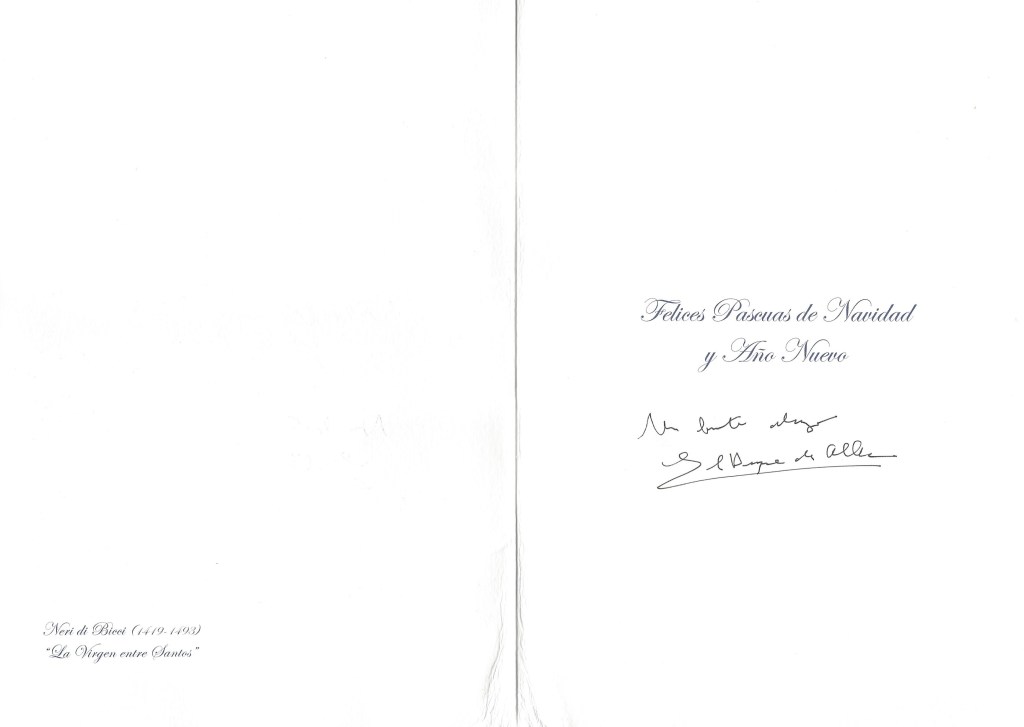 Neri di Bicci (1419-1493)
"La Virgen entre Santos"
Felices Pascuas de Navidad
y Año Nuevo
Un fuerte abrazo
El Duque de Alba